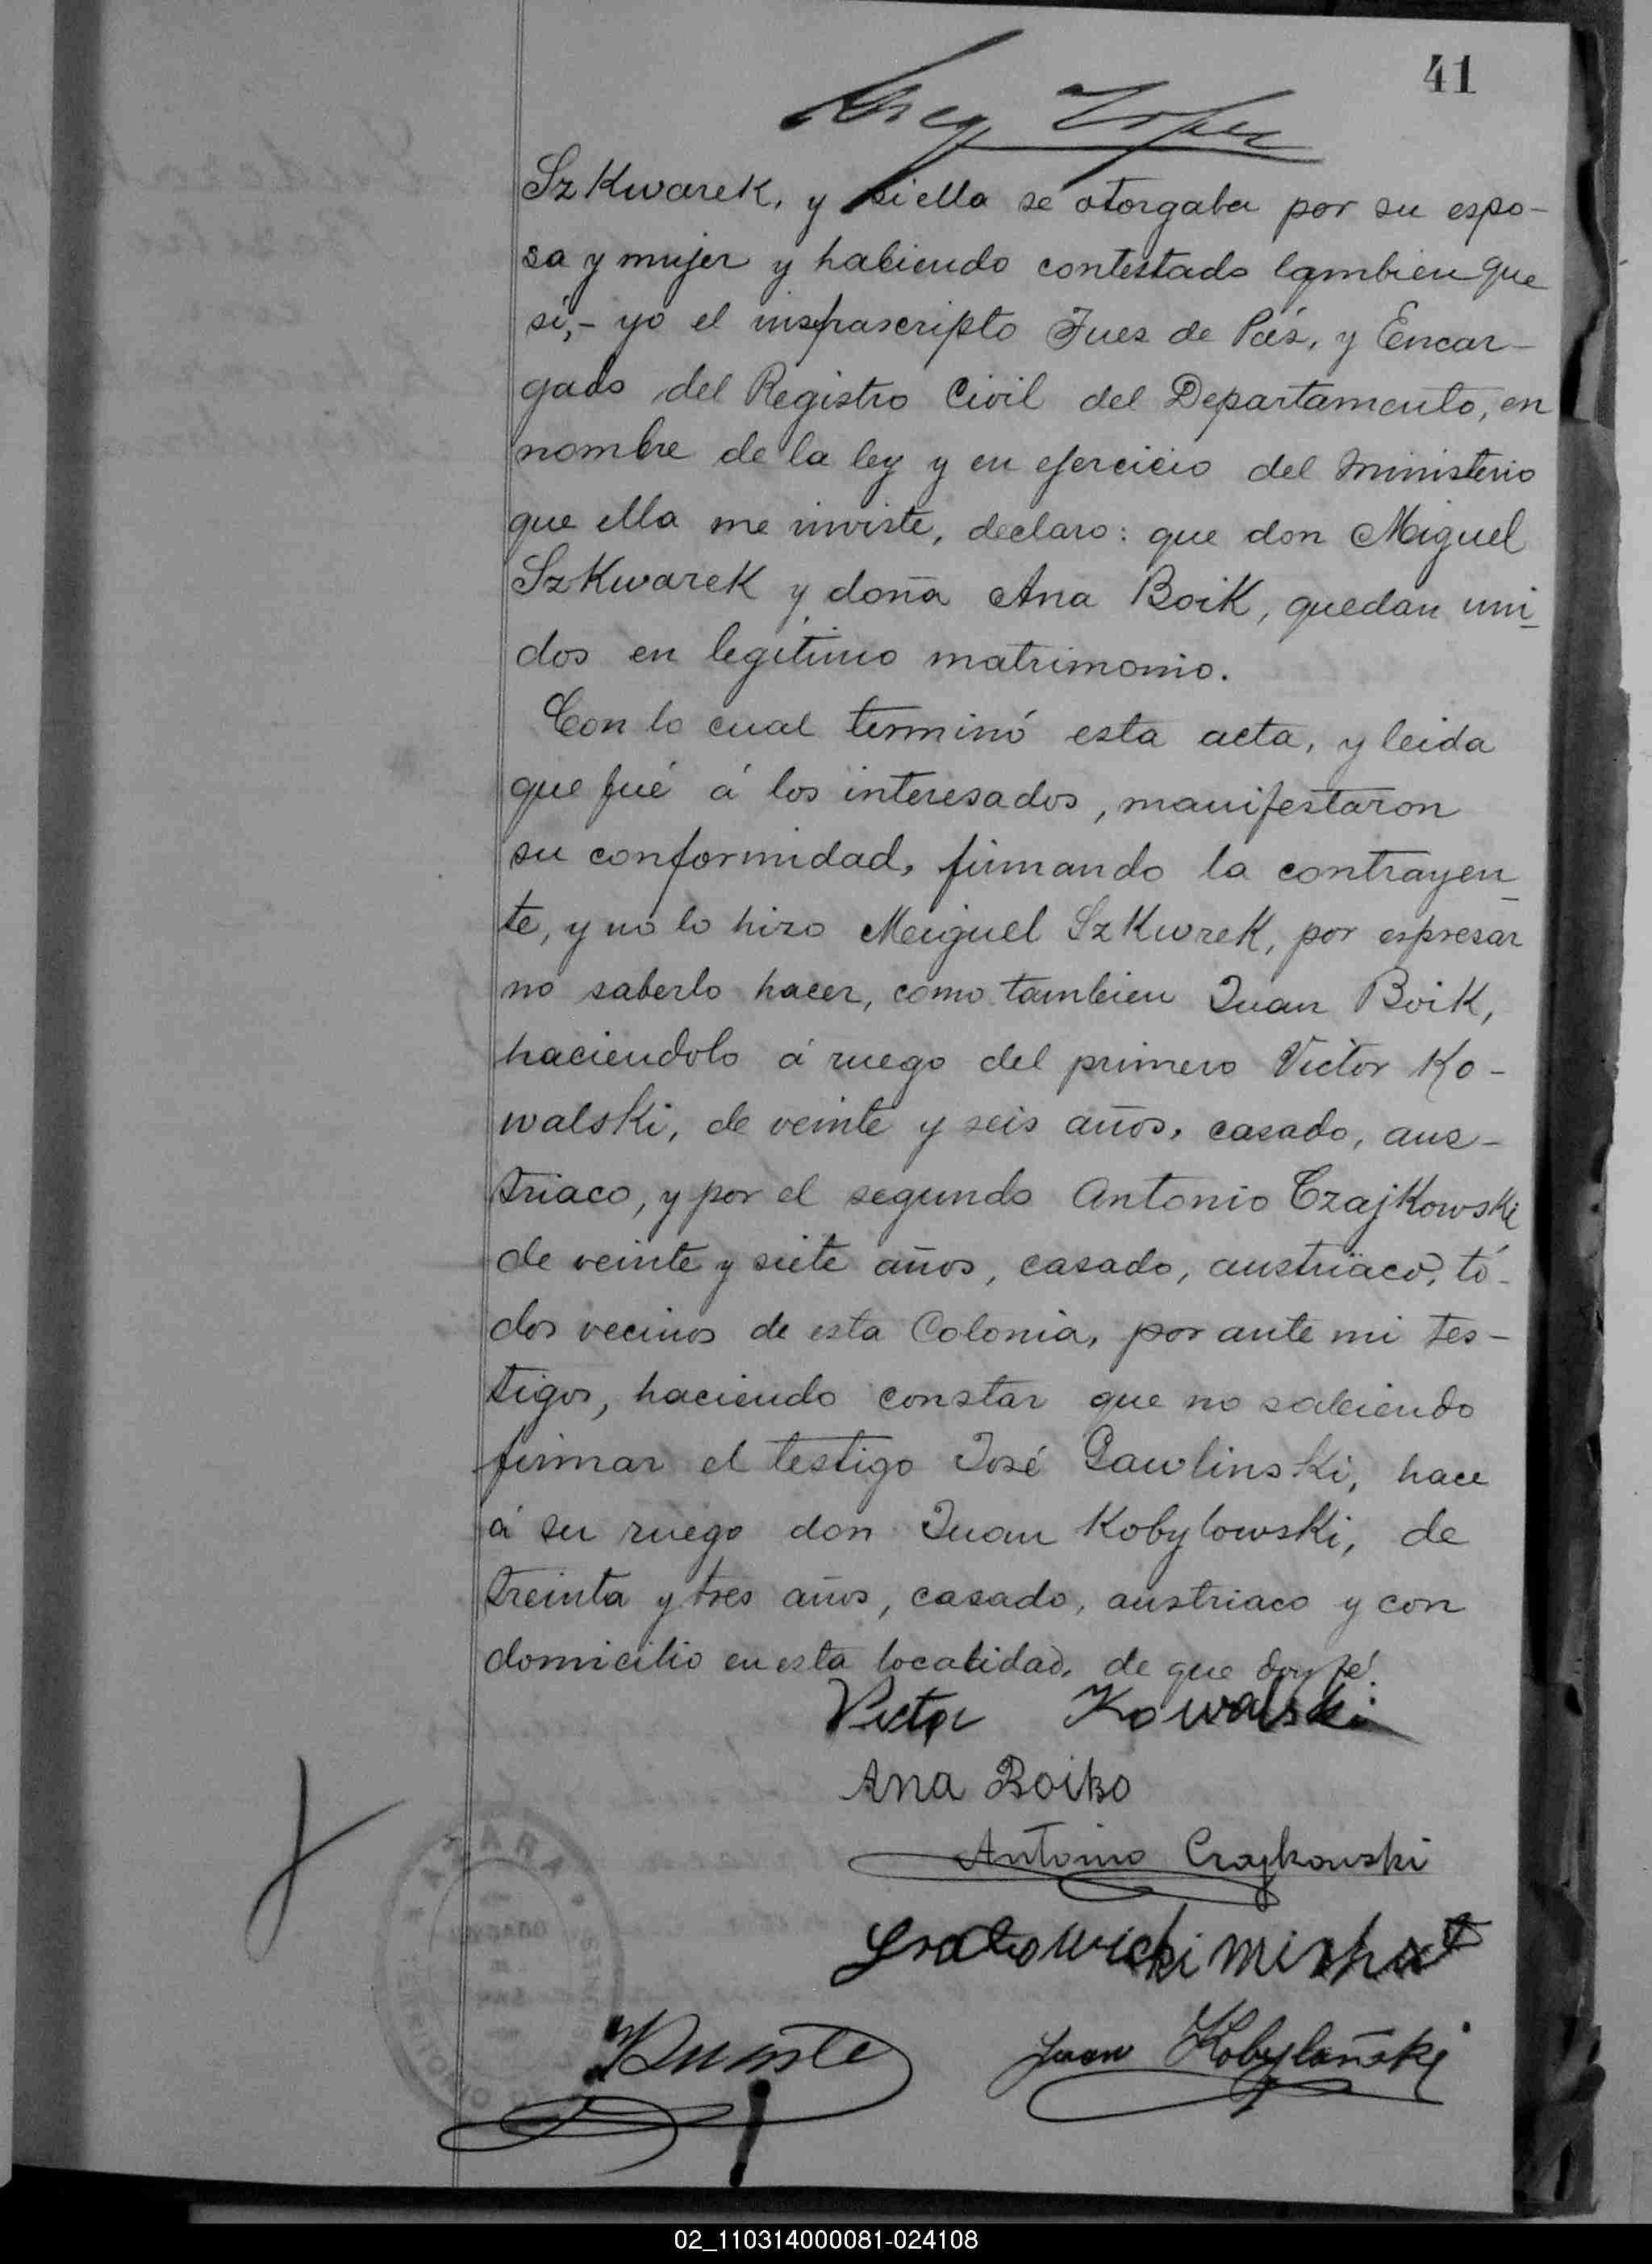 41
Lopez
SzKwarek, y si ella se otorgaba por su espo-
sa y mujer y habiendo contestado tambien que
sí,- yo el insfrascripto Juez de Páz, y Encar-
gado del Registro Civil del Departamento, en
nombre de la ley y en ejercicio del ministerio
que ella me inviste, declaro: que don Miguel
SzKwarek y doña Ana Boik, quedan uni-
dos en legítimo matrimonio.
Con lo cual terminó esta acta, y leida
que fué á los interesados, manifestaron
su conformidad, firmando la contrayen-
te, y no lo hizo Meiguel SzKwrek, por espresar
no saberlo hacer, como tambien Juan Boik,
haciendolo á ruego del primero Victor Ko-
walski, de veinte y seis años, casado, aus-
triaco, y por el segundo Antonio Czajkowski
de veinte y siete años, casado, austriaco, tó-
dos vecinos de esta Colonia, por ante mi tes-
tigos, haciendo constar que no sabiendo
firmar el testigo José Gawlinski, hace
á su ruego don Juan Kobylowski, de
treinta y tres años, casado, austriaco y con
domicilio en esta localidad, de que doy fé.
Victor Kowalski
Ana Boiko
Antonio Czajkowski
Juan Kobylański
02_110314000081-024108